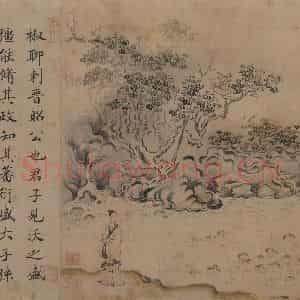 椒聊刺晋昭公也君子見沃之盛
彊能脩其政知其蕃衍盛大子孫
Shufawang.CN